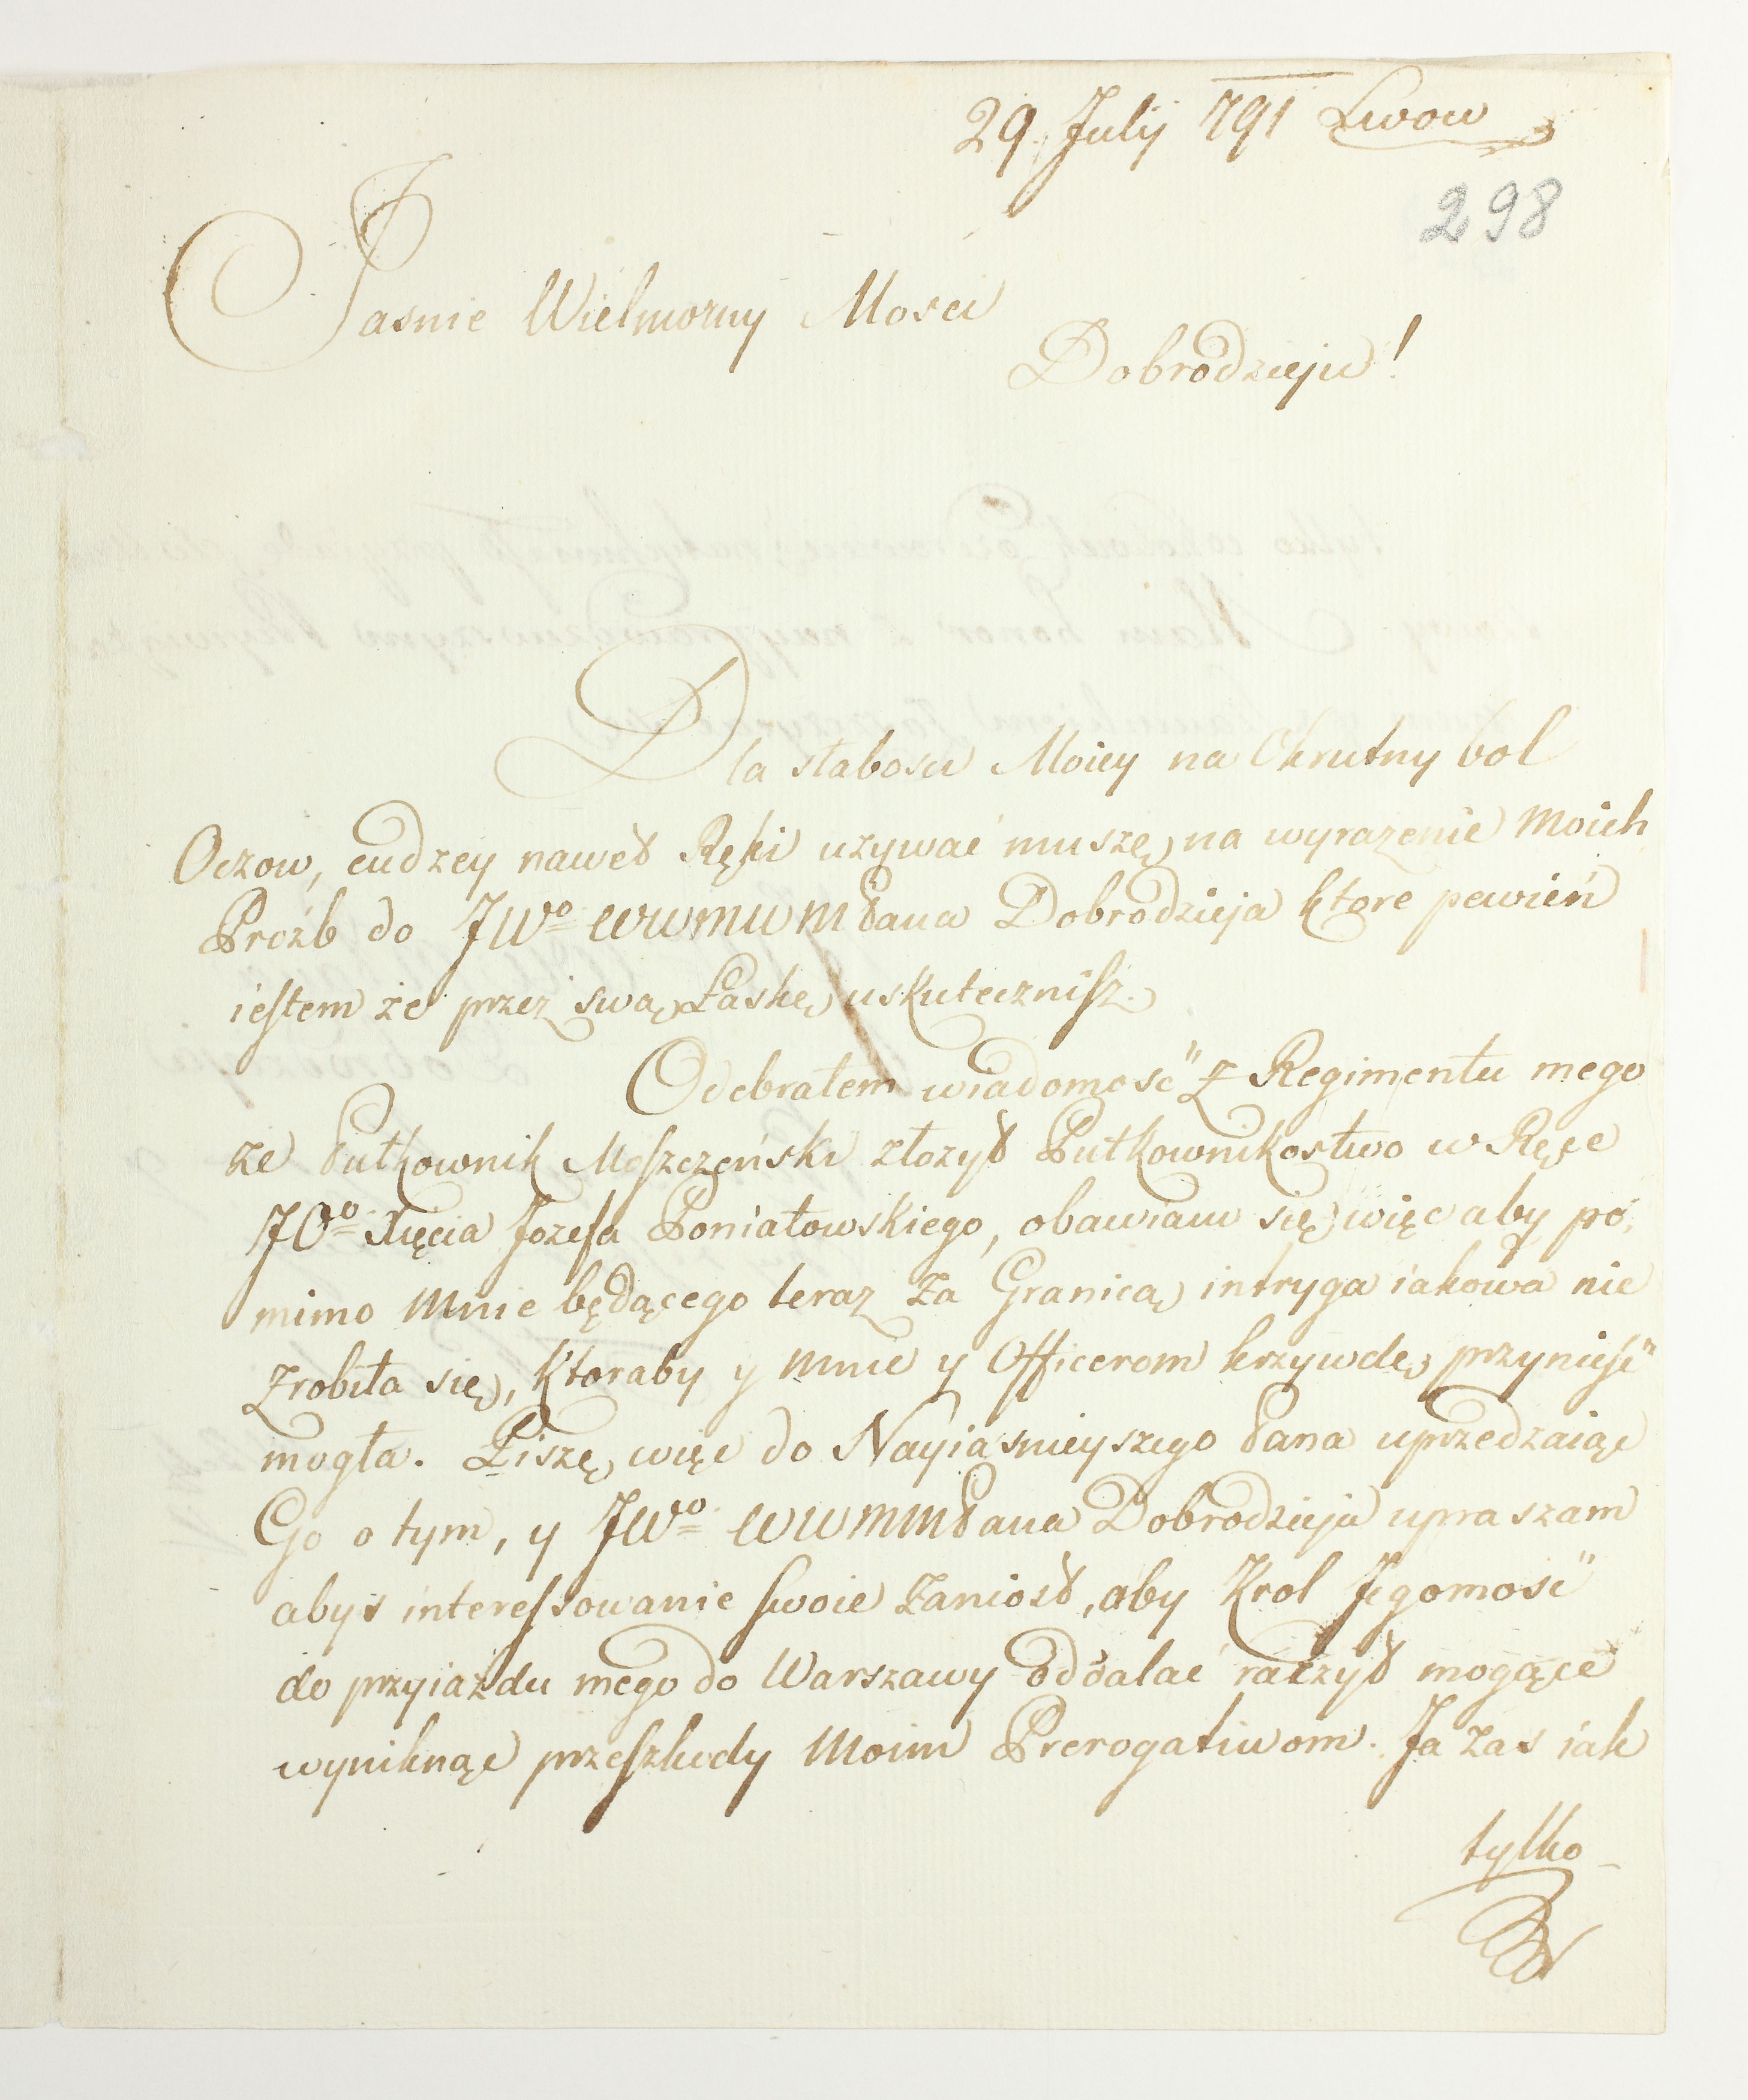 29 Julij 791 Lwow
298
Jasnie Wielmozny Mosci
Dobrodzieju!
Dla słabosci Moiey na Okrutny bol
Oczow, cudzey naweł Ręki uzywać muszę na wyrazenie Moich
Proźb do JWº WWMWMPana Dobrodzieja ktore pewień
iestem że przez swą Łaskę uskutecznisz.
Odebrałem wiadomość Z Regimentu mego
ze Pułkownik Moszczeński złozył Pułkownikostwo w Ręce
JOº Xięcia Jozefa Poniatowskiego, obawiam się więc aby po,
mimo Mnie będącego teraz Za Granicą intryga iakowa nie
zrobiła się, Ktoraby y Mnie y Officerom krzywdę przynieść
mogła. Piszę więc do Nayiasnieyszego Pana uprzedzaiąc
Go o tym, y JWº WWMMPana Dobrodzieja upraszam
abys interessowanie swoie Zaniosł, aby Krol Jegomość
do przyiazdu mego do Warszawy oddalać raczył mogące
wyniknąć przeszkody Moim Prerogatiwom. Ja Zas iak
tylko